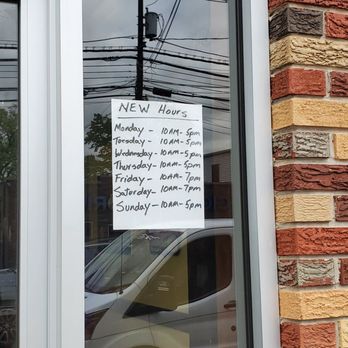 NEW Hours
Monday - 10AM - 5pm
Tuesday - 10AM - 5pm
Wednesday - 10AM - 5pm
Thursday - 10AM - 5pm
Friday - 10AM - 7pm
Saturday - 10AM - 7pm
Sunday - 10AM - 5pm